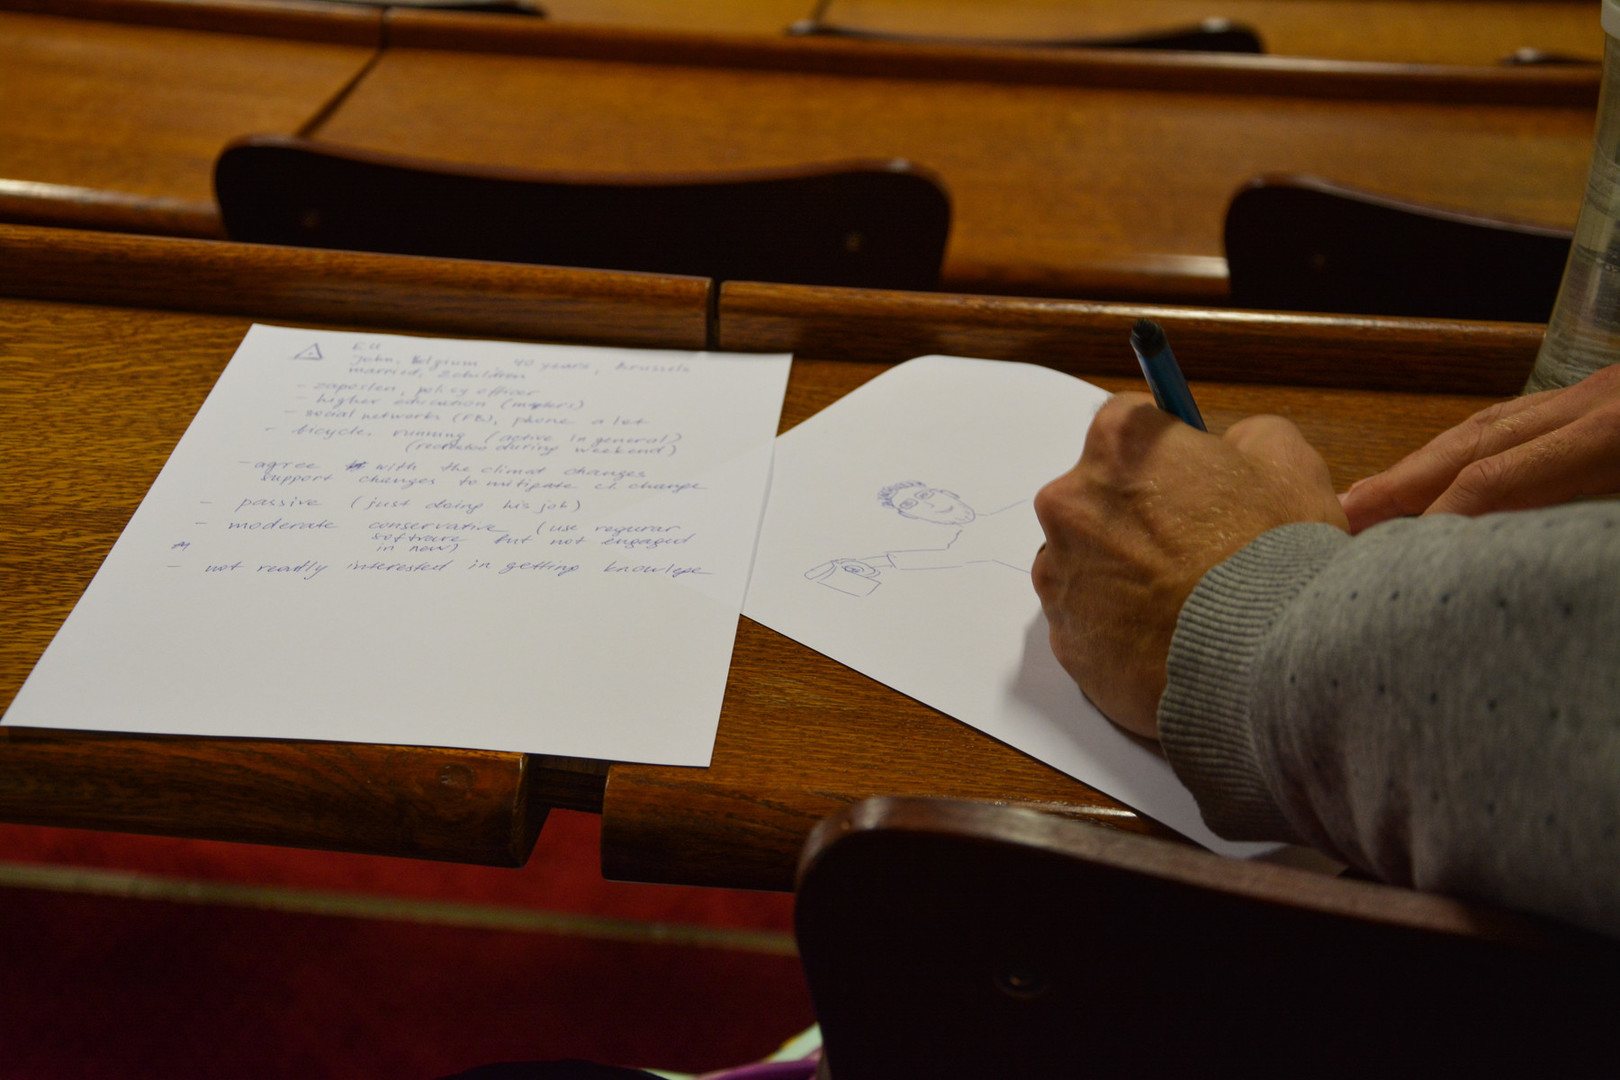 EU
John, Belgium, 40 years, Brussels
married, 2 children
- zaposlen, policy officer
- higher education (masters)
- social networks (FB), phone a lot
- bicycle, running (active in general)
during weekend)
- agree with the climat changes
support changes to mitigate cl. change
- passive (just doing his job)
- moderate conservative (use regurar
software but not engaged
in new)
- not really interested in getting knowlege